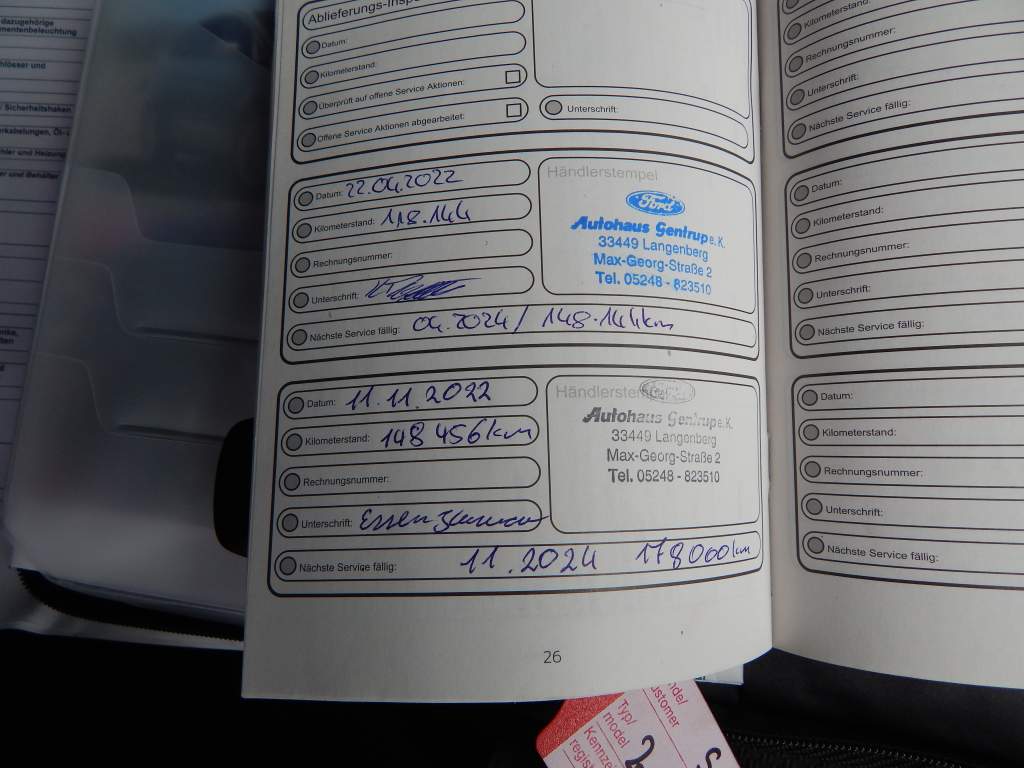 dazugehörige
mentenbeleuchtung
hlösser und
Sicherheitshaken
hler und Heizung
er und Behälter
Ablieferungs-Inspe
Datum:
Kilometerstand:
Überprüft auf offene Service Aktionen:
Offene Service Aktionen abgearbeitet:
Unterschrift:
Datum: 22.04.2022
Kilometerstand: 118.144
Rechnungsnummer:
Unterschrift:
Nächste Service fällig: 04.2024 / 148.144km
Händlerstempel
Ford
Autohaus Gentrup e.K.
33449 Langenberg
Max-Georg-Straße 2
Tel. 05248 - 823510
Datum: 11.11.2022
Kilometerstand: 148456km
Rechnungsnummer:
Unterschrift:
Nächste Service fällig: 11.2024 178000km
Händlerstempel
Ford
Autohaus Gentrup e.K.
33449 Langenberg
Max-Georg-Straße 2
Tel. 05248 - 823510
26
Kilometerstand:
Rechnungsnummer:
Unterschrift:
Nächste Service fällig:
Datum:
Kilometerstand:
Rechnungsnummer:
Unterschrift:
Nächste Service fällig:
Datum:
Kilometerstand:
Rechnungsnummer:
Unterschrift:
Nächste Service fällig:
nde/
ustomer
Typ/
model
Kennze
regist